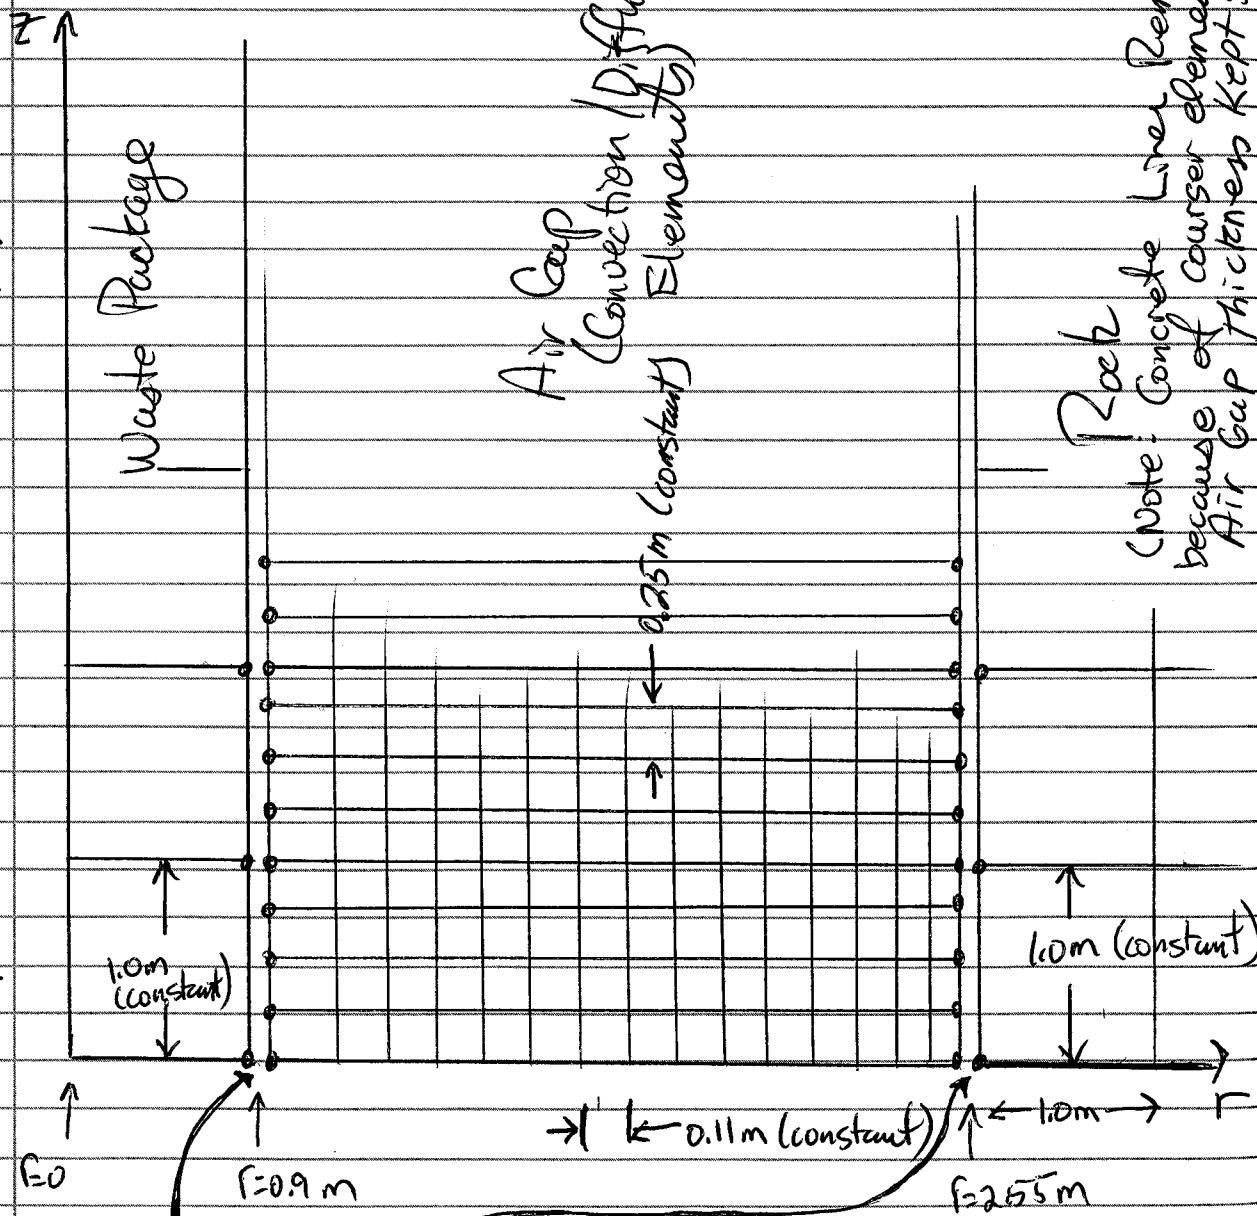 z
Waste Package
Air Gap
(Convection/Diffu
Elements)
0.25m (constant)
Rock
(Note: Concrete Liner Rem
because of courser elemen
Air Gap thickness Kept
1.0m
(constant)
1.0m (constant)
0.11m (constant)
1.0m
r
r=0
r=0.9 m
r=2.55m